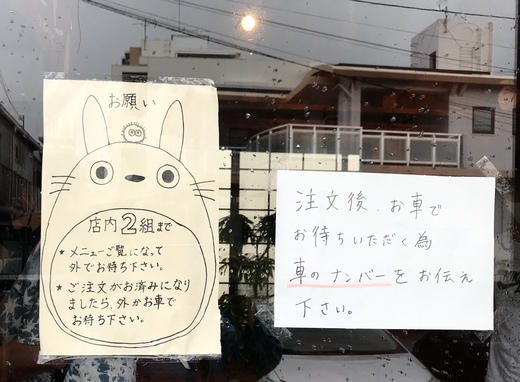 お願い
店内2組まで
★ メニューご覧になって
外でお待ち下さい。
★ ご注文がお済みになり
ましたら、外かお車で
お待ち下さい。
注文後、お車で
お待ちいただく為
車のナンバーをお伝え
下さい。